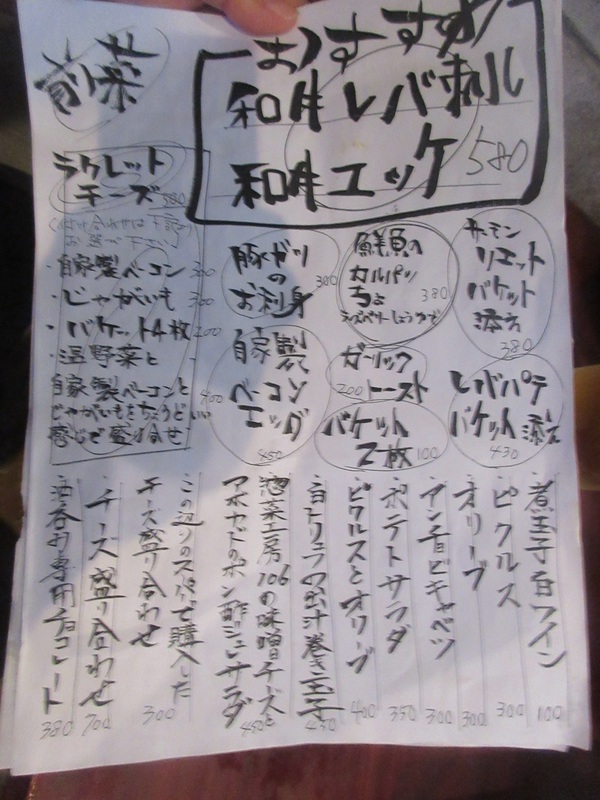 前菜
おすすめ
和牛レバ刺し
和牛ユッケ 580
ラクレット
チーズ 580
お選び下さい
・自家製ベーコン 300
・じゃがいも 300
・バケット4枚 200
・温野菜と
自家製ベーコンと
じゃがいもをちょうどいい
感じで盛り合せ 400
豚ガツ
の
お刺身 380
鮮魚の
カルパッ
ちょ 380
ラズベリーしょうゆで
サーモン
リエット
バケット
添え
380
自家製
ベーコン
エッグ
450
ガーリック
トースト 200
バケット
2枚 100
レバパテ
バケット添え
430
煮玉子白ワイン 100
・ピクルス 300
オリーブ 300
・アンチョビキャベツ 300
・ポテトサラダ 350
・ピクルスとオリーブ 400
・白トリュフの出汁巻き玉子 450
・惣菜工房106の味噌チーズと
アボカドのポン酢ジュレサラダ 450
・この辺りのスーパーで購入した
チーズ盛り合わせ 300
・チーズ盛り合わせ 700
・酒呑み専用チョコレート 380